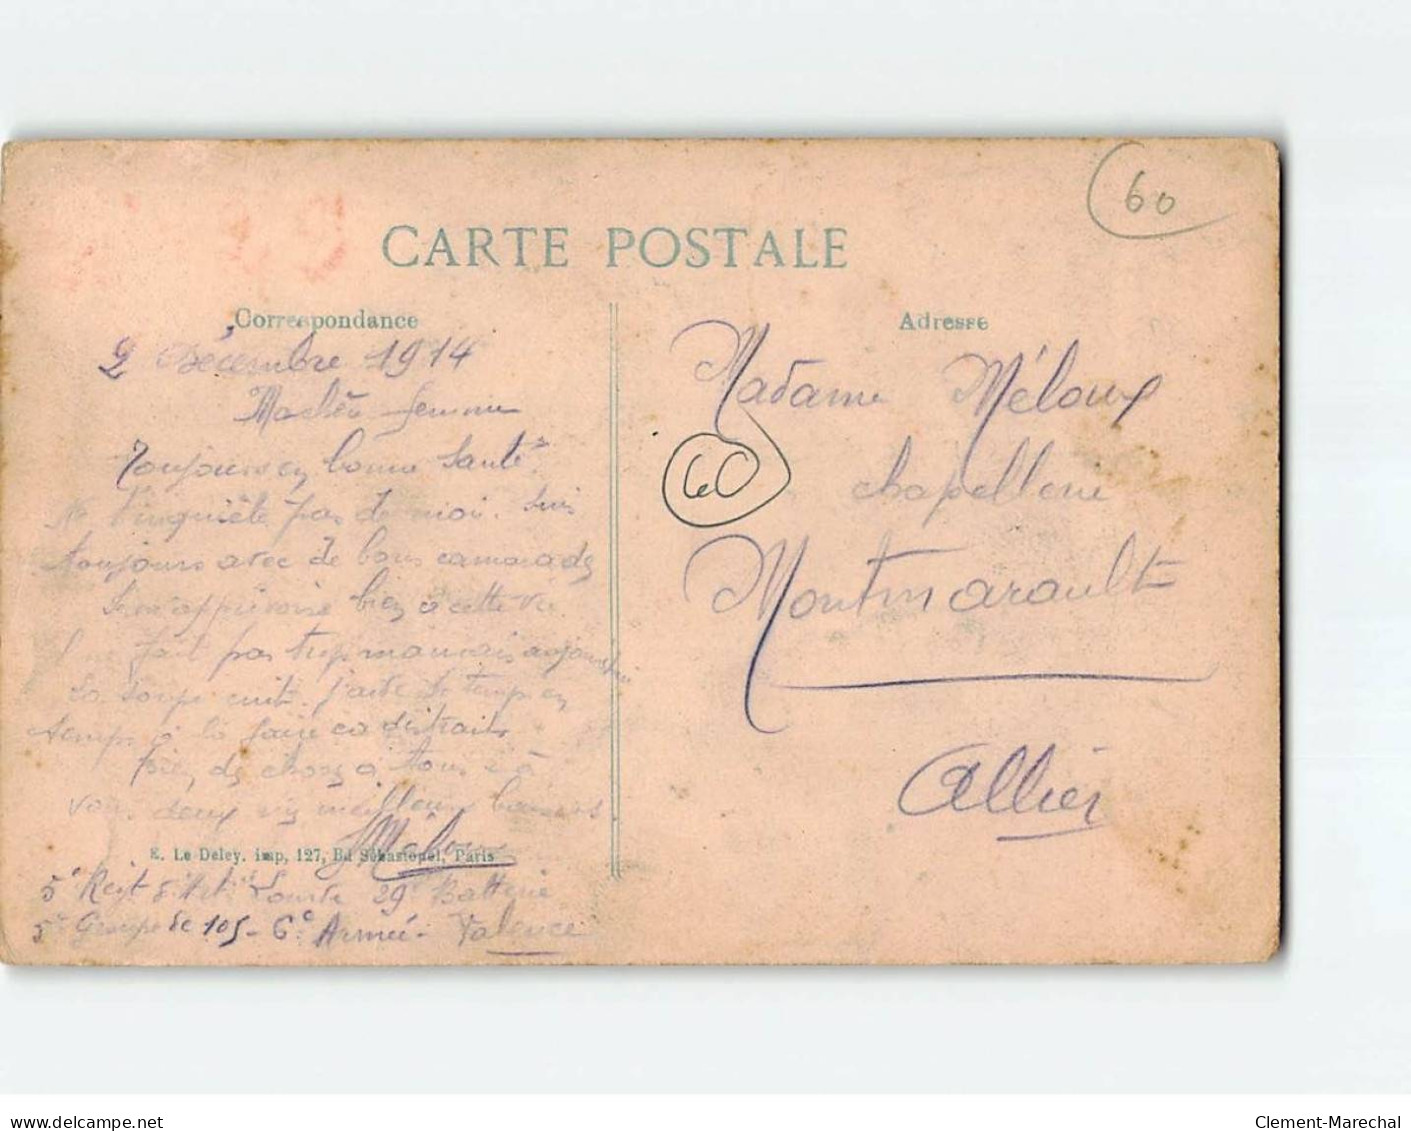 60
CARTE POSTALE
Correspondance
2 Décembre 1914
Ma chère femme
Toujours en bonne santé.
Ne t'inquiète pas de moi. Suis
toujours avec de bons camarades
bien à cette vie
fait pas trop mauvais aujourd'hui
La soupe cuit. J'aide de temps en
temps à la faire ca distrait
bien des choses à tous et à
vous deux mes meilleurs baisers
Méloux
E. Le Deley. imp, 127, Bd Sébastopol, Paris
5e Regt d'Art Lourde 29e Batterie
5e Groupe de 105 - 6e Armée - Valence
Adresse
Madame Méloux
60
chapellerie
Montmarault
Allier
delcampe.net
Clement-Marechal